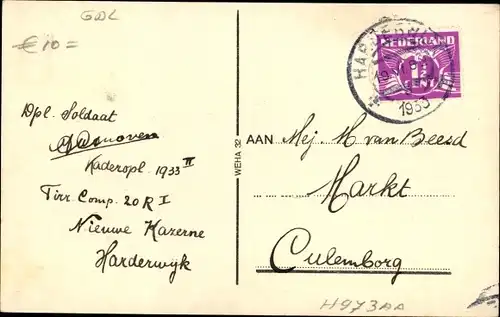 GDL
€ 10 =
Dpl. Soldaat
Kaderopl. 1933 II
Tirr. Comp. 20 R I
Nieuwe Kazerne
Harderwyk
WEHA 32
NEDERLAND
1933
AAN Mej. M van Beesd
Markt
Culemborg
H973AA